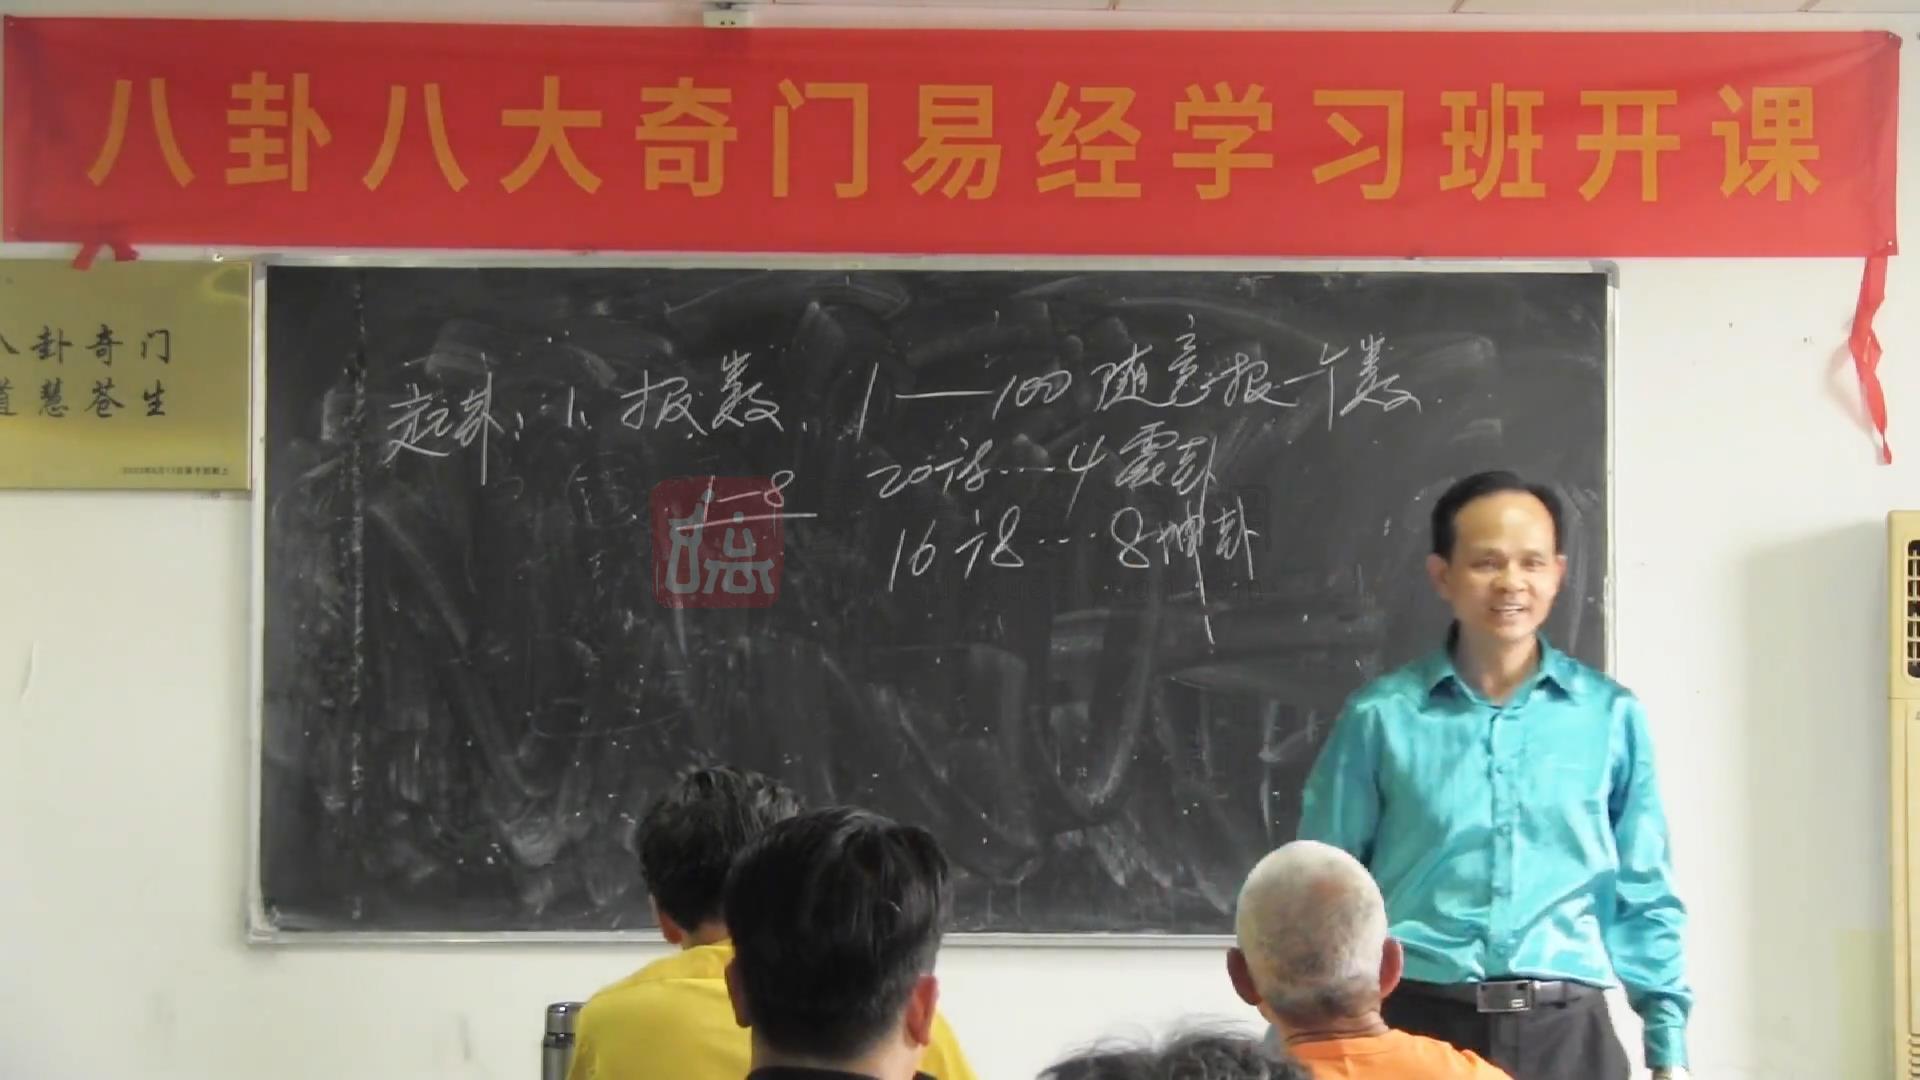 八卦八大奇门易经学习班开课
八卦奇门
道慧苍生
起卦: 1. 报数. 1——100 随意报一个数.
1—8 20 ..... 4 震卦
16 ÷8 ... 8 坤卦